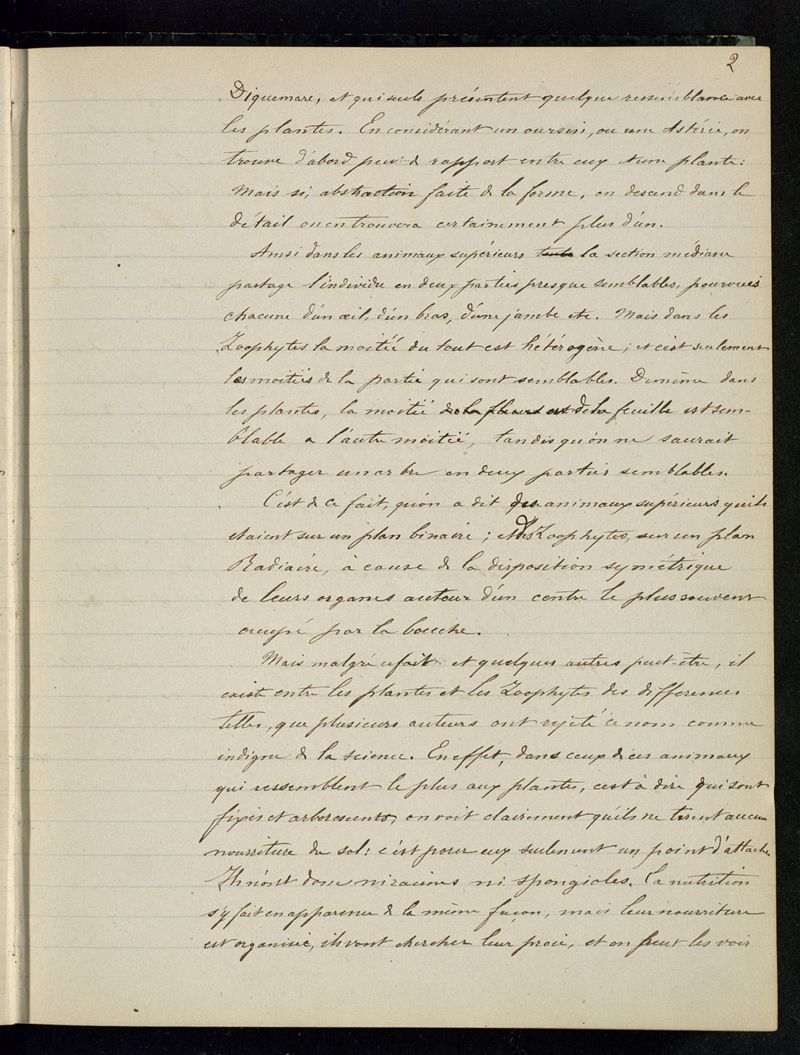 2
Diquemare, et qui seuls présentent quelque ressemblance avec
les plantes. En considérant un oursin, ou une Astérie, on
trouve d'abord peu de rapport entre eux et une plante:
Mais si, abstraction faite de la forme, on descend dans le
détail on en trouvera certainement plus d'un.
Ainsi dans les animaux supérieurs toute la section médiane
partage l'individu en deux parties presque semblables, pourvues
chacune d'un œil, d'un bras, d'une jambe etc. Mais dans les
Zoophytes la moitié du tout est hétérogène; et c'est seulement
les moitiés de la partie qui sont semblables. De même dans
les plantes, la moitié de la fleur et de la feuille est sem-
blable a l'autre moitié, tandis qu'on ne saurait
partager un arbre en deux parties semblables.
C'est de ce fait, qu'on a dit des animaux supérieurs qu'ils
étaient sur un plan binaire; et des Zoophytes, sur un plan
Radiaire, à cause de la disposition symétrique
de leurs organes autour d'un centre le plus souvent
occupé par la bouche.
Mais malgré ce fait et quelques autres peut-être, il
existe entre les plantes et les Zoophytes des différences
telles, que plusieurs auteurs ont rejeté ce nom comme
indigne de la science. En effet, dans ceux de ces animaux
qui ressemblent le plus aux plantes, c'est à dire qui sont
fixés et arborescents, on voit clairement qu'ils ne tirent aucune
nourriture du sol: c'est pour eux seulement un point d'attache
Ils n'ont donc ni racines ni spongioles. La nutrition
s'y fait en apparence de la même façon, mais leur nourriture
est organisée, ils vont chercher leur proie, et on peut les voir